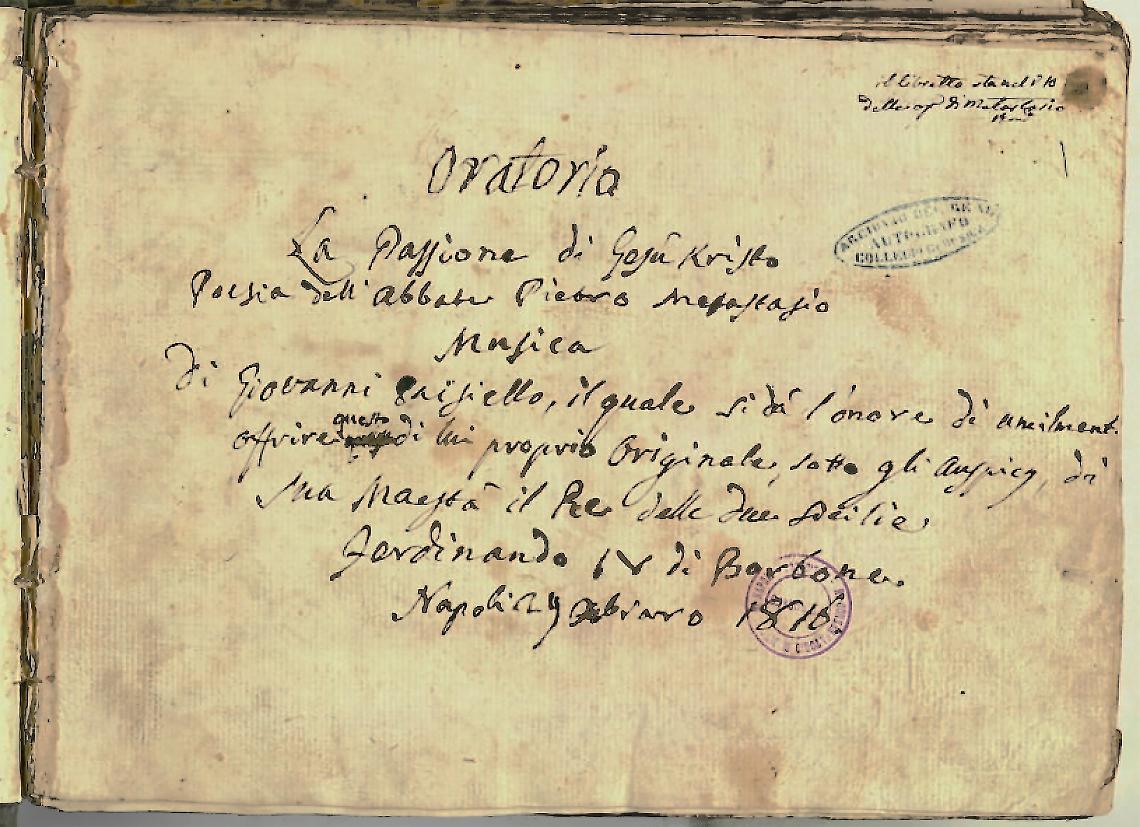 il libretto sta nel
delle op di Metastasio
Oratorio
La Passione di Gesù Kristo
Poesia dell'abbate Pietro Metastasio
Musica
di Giovanni Paisiello, il quale si dà l'onore di umilment.
offrire questo di lui proprio Originale, sotto gli auspicj, di
Sua Maestà il Re delle due Sicilie
Ferdinando IV di Borbone.
Napoli 1816
AUTOGRAFO